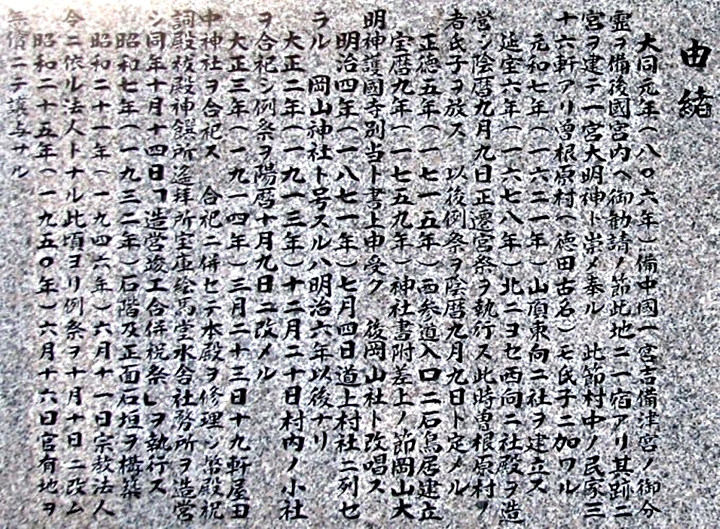 由緒
大同元年(八〇六年)備中國一宮吉備津宮ノ御分
霊ヲ備後國宮内ヘ御勧請ノ節此地ニ一宿アリ其跡ニ
宮ヲ建テ一宮大明神ト崇メ奉ル 此節村中ノ民家三
十六軒アリ曽根原村(徳田古名)モ氏子ニ加ワル
元和七年(一六二一年)山頂東向ニ社ヲ建立ス
延宝六年(一六七八年)北ニヨセ西向ニ社殿ヲ造
営シ陰暦九月九日正遷宮祭ヲ執行ス此時曽根原村ノ
者氏子ヲ放ス 以後例祭ヲ陰暦九月九日ト定メル
正徳五年(一七一五年)西参道入口ニ石鳥居建立
宝暦九年(一七五九年)神社書附差上ノ節岡山大
明神護國寺別当ト書上申受ク 後岡山社ト改唱ス
明治四年(一八七一年)七月四日道上村社ニ列セ
ラル 岡山神社ト号スルハ明治六年以後ナリ
大正二年(一九一三年)十二月二十日村内ノ小社
ヲ合祀シ例祭ヲ陽暦十月九日ニ改メル
大正三年(一九一四年)三月二十三日十九軒屋田
中神社ヲ合祀ス 合祀ニ併セテ本殿ヲ修理シ幣殿祝
詞殿祓殿神饌所遥拝所宝庫絵馬堂水舎社務所ヲ造営
シ同年十月十四日「造営竣工合併祝祭」ヲ執行ス
昭和七年(一九三二年)石階及正面石垣ヲ構築
昭和二十一年(一九四六年)六月十一日宗教法人
令ニ依ル法人トナル此頃ヨリ例祭ヲ十月十日ニ改ム
昭和二十五年(一九五〇年)六月十六日官有地ヲ
無償ニテ譲与サル